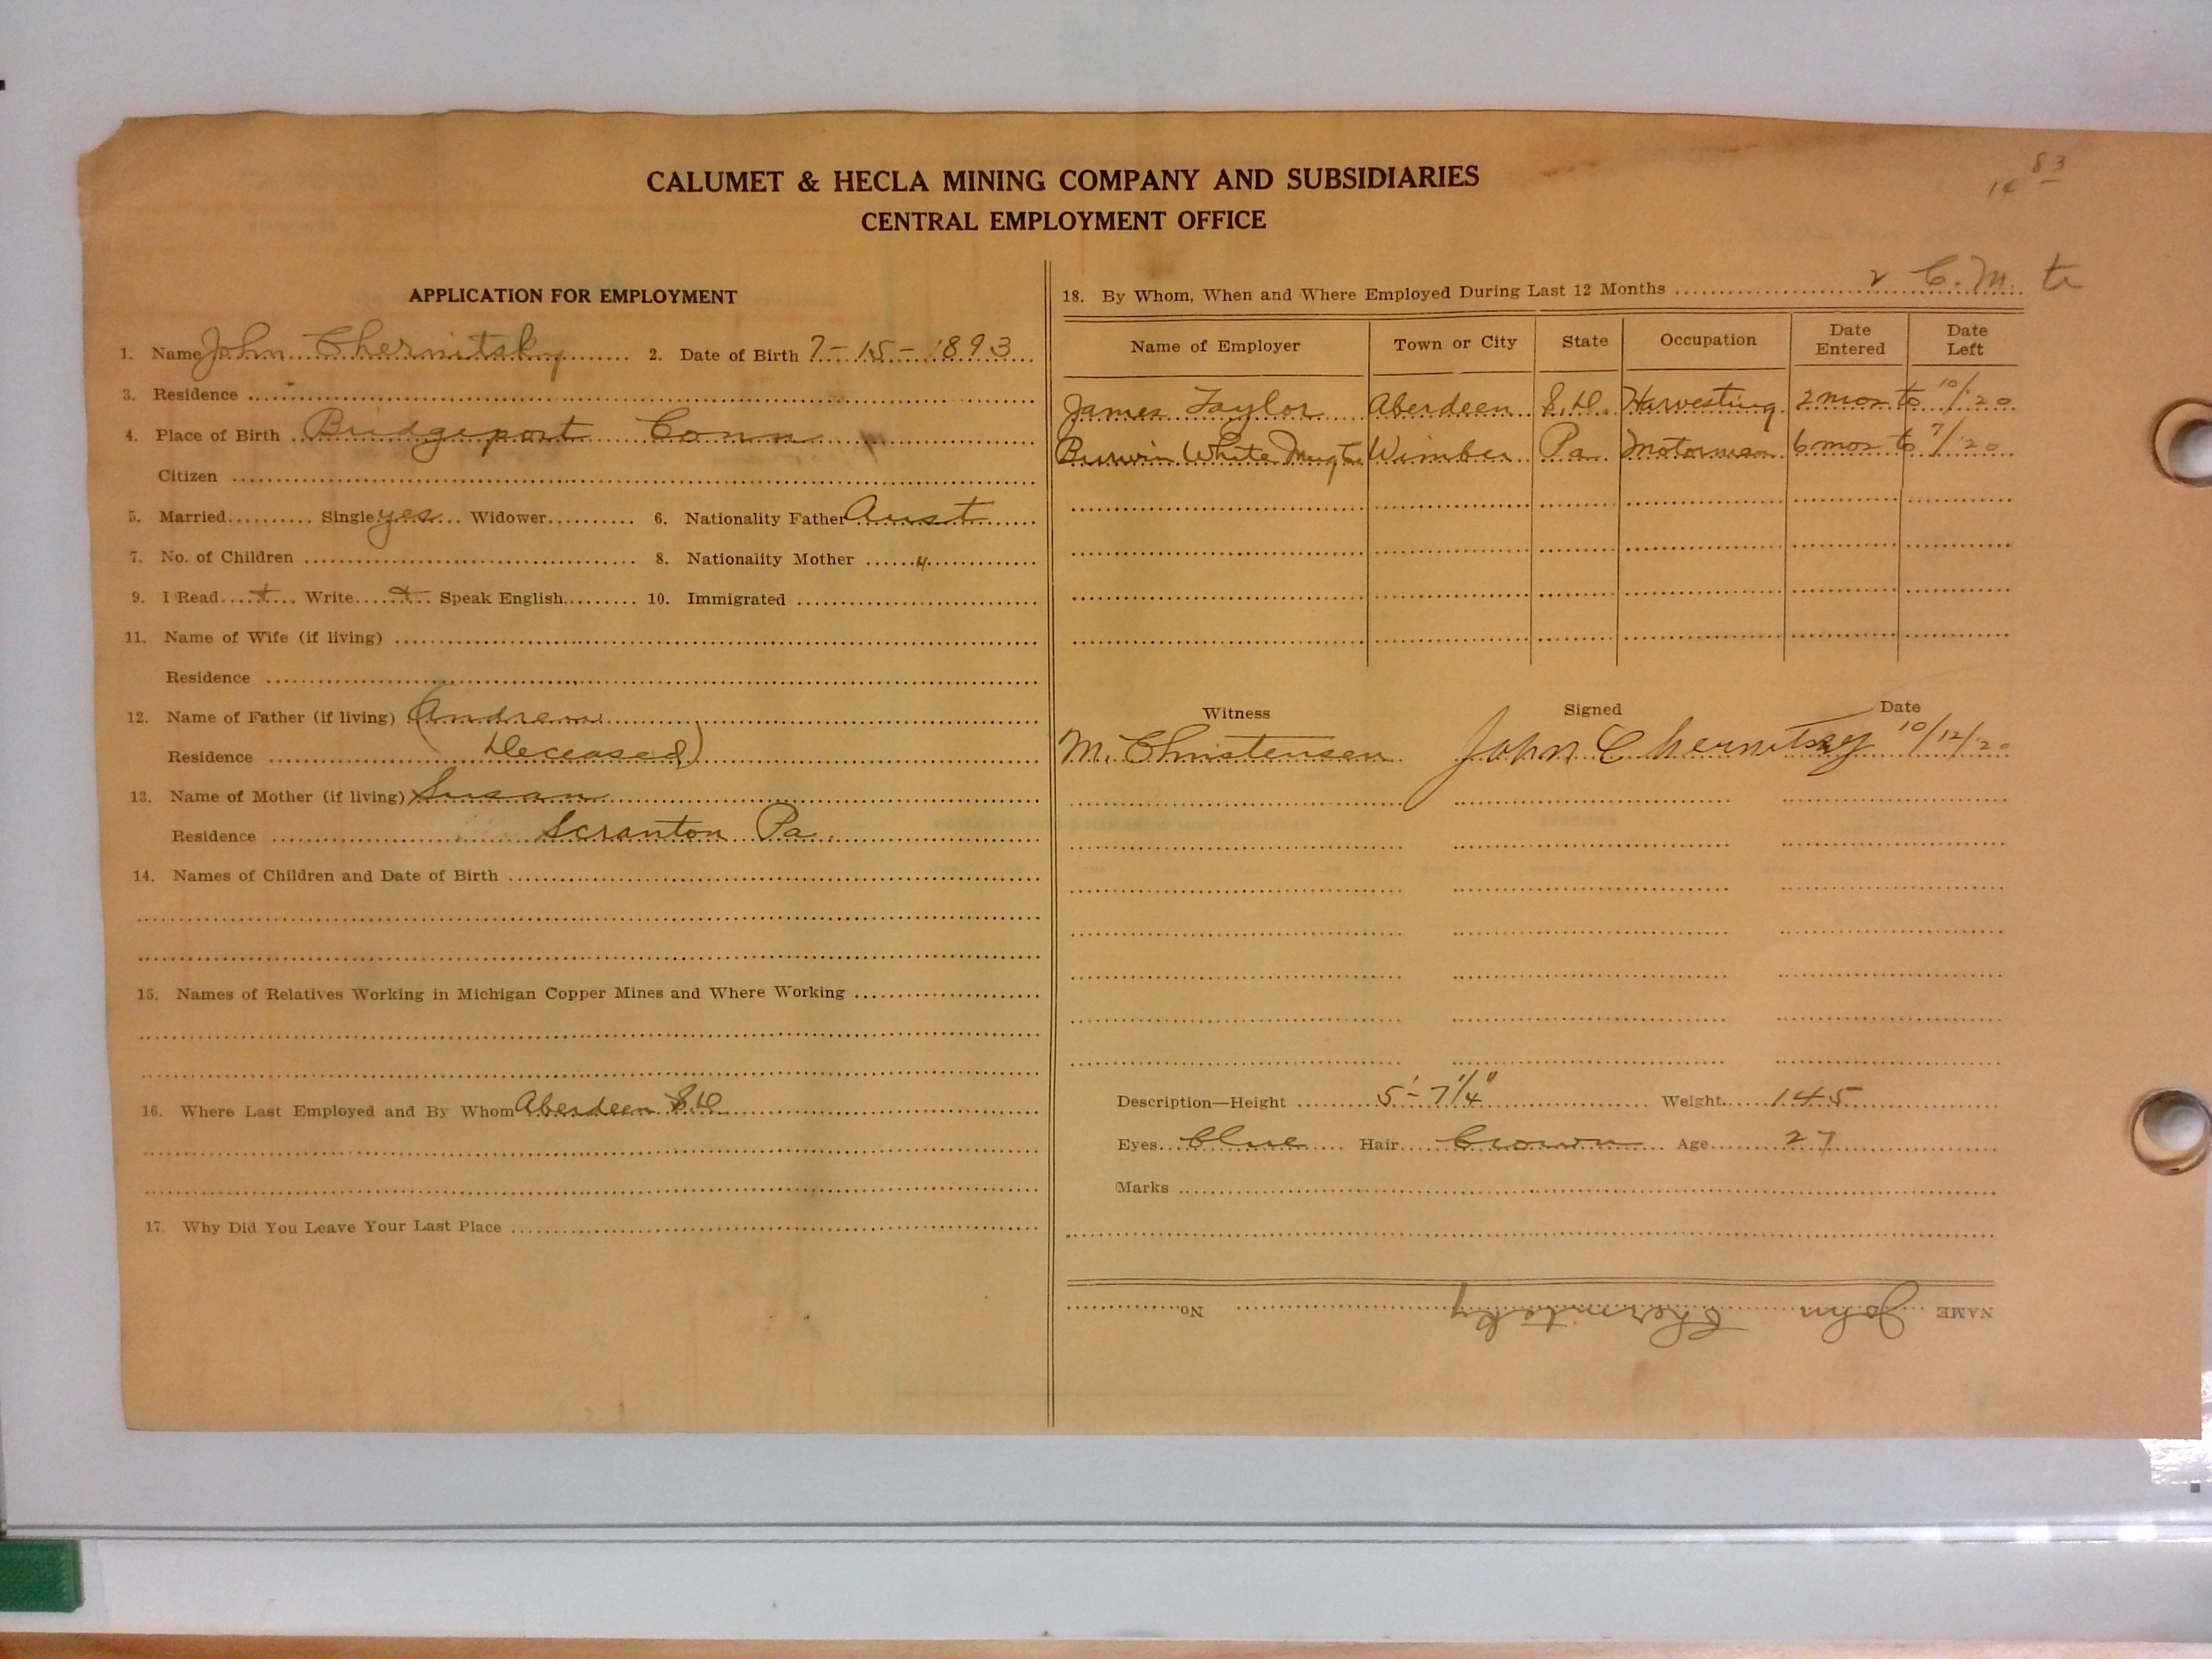 14 83
CALUMET & HECLA MINING COMPANY AND SUBSIDIARIES
CENTRAL EMPLOYMENT OFFICE
APPLICATION FOR EMPLOYMENT
1. Name John Chernitsky 2. Date of Birth 7-15-1893
3. Residence
4. Place of Birth Bridgeport Conn
Citizen
5. Married Single yes Widower 6. Nationality Father Aust
7. No. of Children 8. Nationality Mother "
9. I Read + Write + Speak English 10. Immigrated
11. Name of Wife (if living)
Residence
12. Name of Father (if living) (Andrew
Residence Deceased)
13. Name of Mother (if living) Susan
Residence Scranton Pa.
14. Names of Children and Date of Birth
15. Names of Relatives Working in Michigan Copper Mines and Where Working
16. Where Last Employed and By Whom Aberdeen S.D
17. Why Did You Leave Your Last Place
18. By Whom, When and Where Employed During Last 12 Months 2 C.M.
Name of Employer Town or City State Occupation Date Entered Date Left
James Taylor Aberdeen S.D. Harvesting 2 mos to 10/20
White Wimber Pa. Motorman 6 mos to 7/20
Witness Signed Date
M. Christensen John Chernitsky 10/12/20
Description—Height 5'-7 1/4" Weight 145
Eyes blue Hair brown Age 27
Marks
NAME John Chernitsky No.